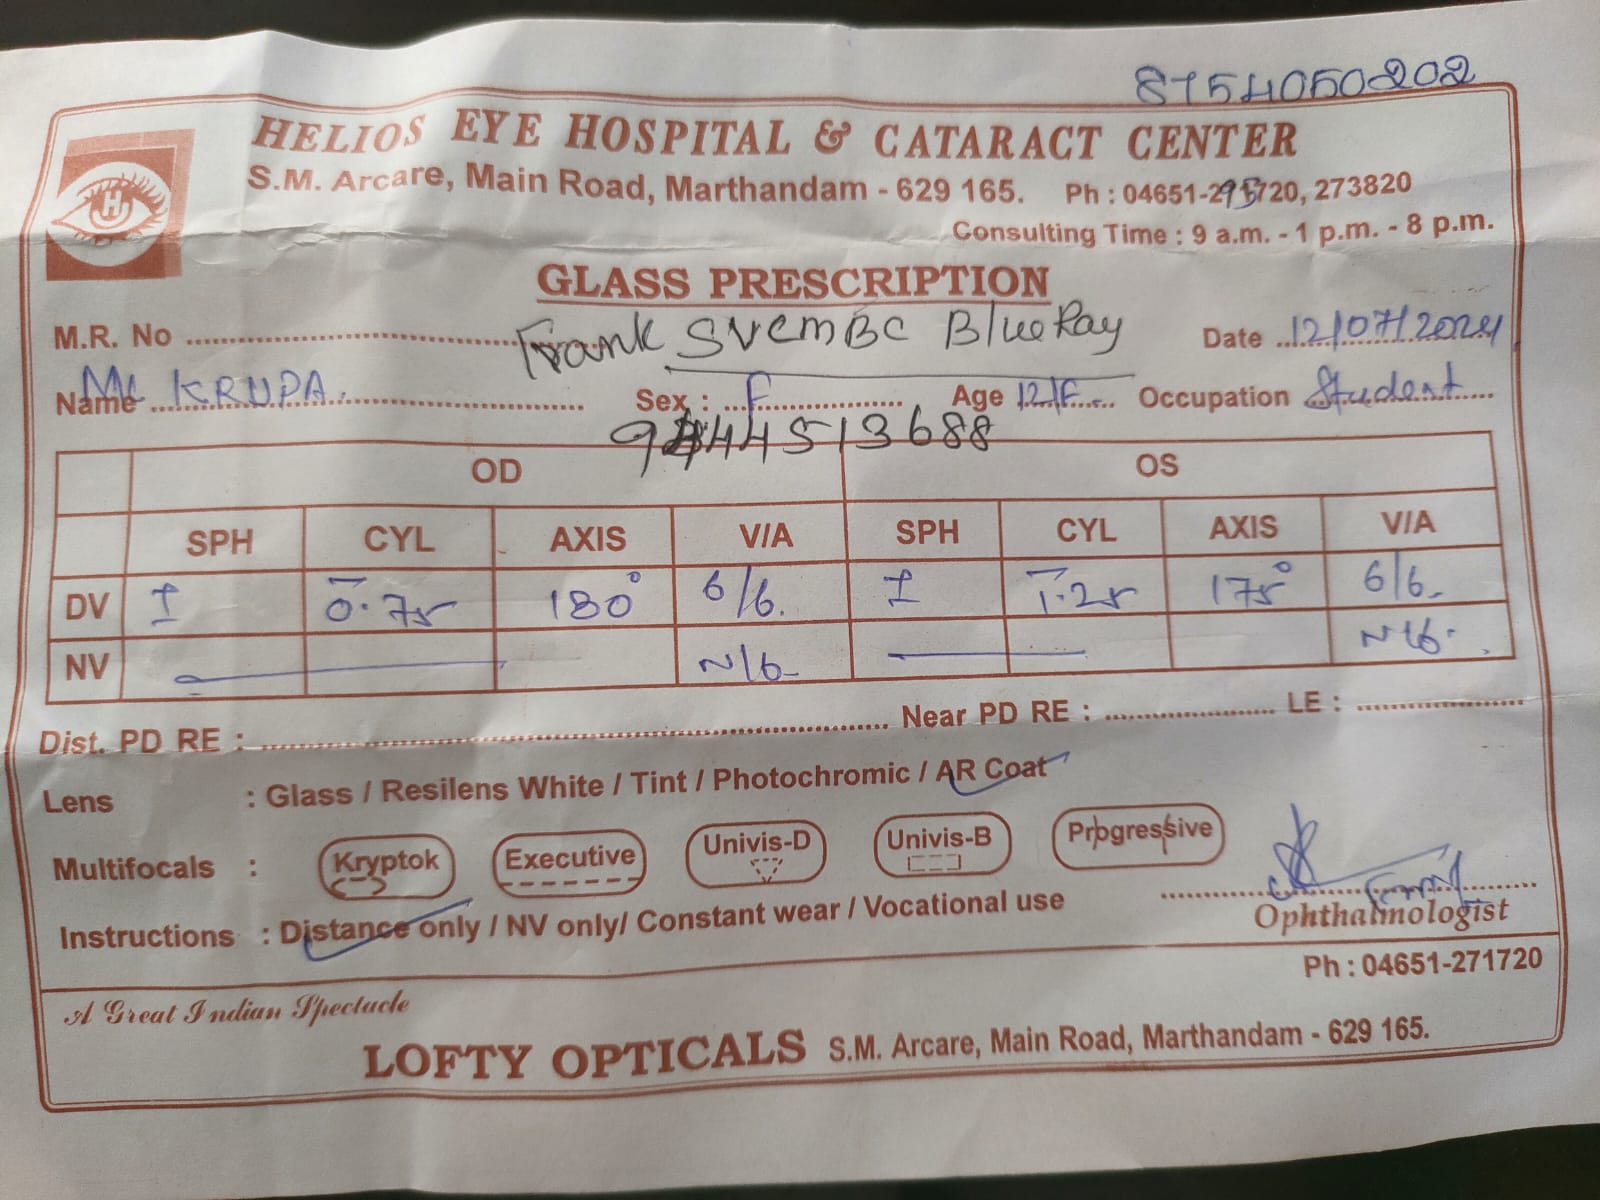 8754050202
HELIOS EYE HOSPITAL & CATARACT CENTER
S.M. Arcare, Main Road, Marthandam - 629 165. Ph : 04651-295720, 273820
Consulting Time : 9 a.m. - 1 p.m. - 8 p.m.
H
GLASS PRESCRIPTION
M.R. No Frank SVCMBC BlueRay Date 12/07/2024
Name KRUPA. Sex : F Age 12/F Occupation Student
9444513688
OD OS
SPH CYL AXIS V/A SPH CYL AXIS V/A
DV -0.75 180° 6/6 -1.25 175° 6/6
NV N/6 N/6
Dist. PD RE : Near PD RE : LE :
Lens : Glass / Resilens White / Tint / Photochromic / AR Coat
Multifocals : Kryptok Executive Univis-D Univis-B Progressive
Instructions : Distance only / NV only/ Constant wear / Vocational use
Ophthalmologist
Ph : 04651-271720
A Great Indian Spectacle
LOFTY OPTICALS S.M. Arcare, Main Road, Marthandam - 629 165.